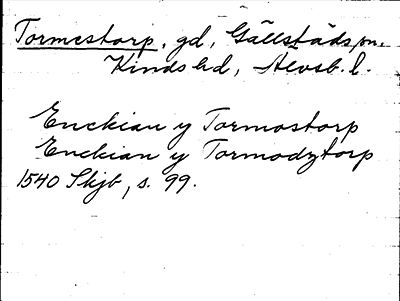 Tormestorp, gd, Gällstads sn.
Kinds hd, Älvsb. l.
Enckian y Tormostorp
Enckian y Tormodztorp
1540 Skjb, s. 99.